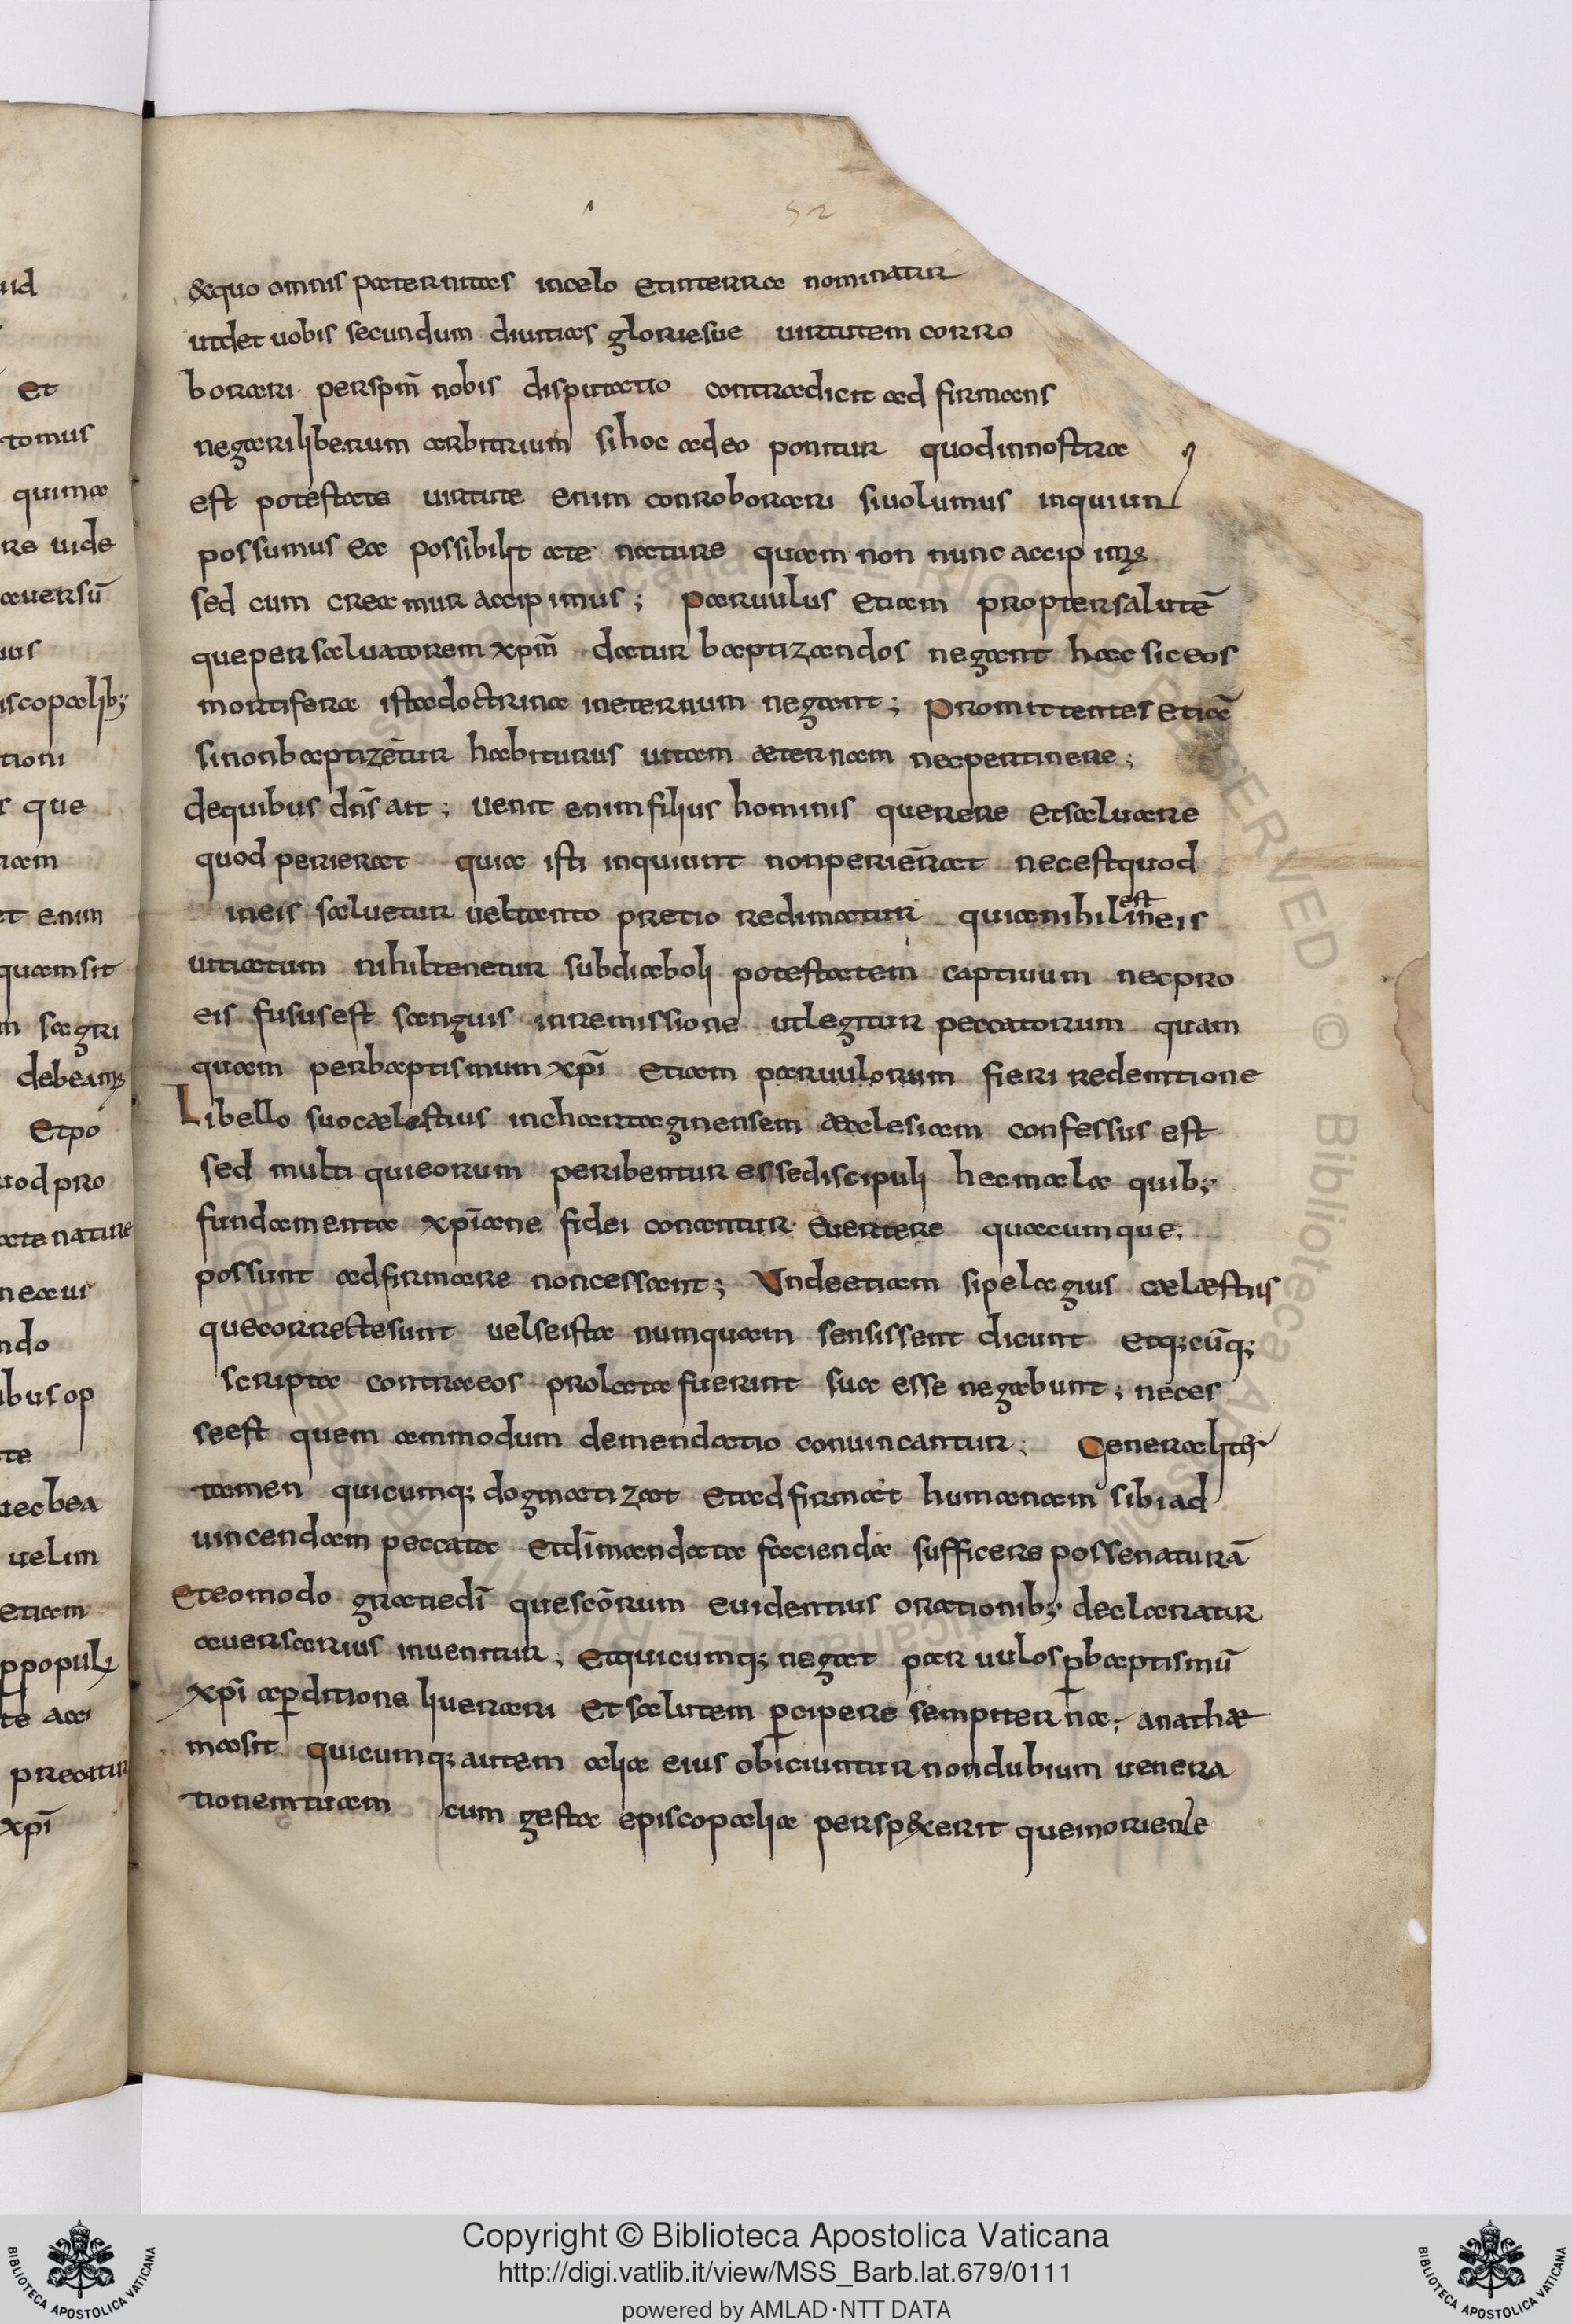 52
&quo omnis paternitas incelo etinterra nominatur
utdet uobis secundum diuitias gloriesue uirtutem corro
borari perspm̄ nobis disputatio contradicit ad firmans
negariliberum arbitrium sihoc adeo ponitur quodinnostra
est potestate uirtute enim conroborari siuolumus inquiun
possumus ea possibilit ate nature quam non nunc accip imꝰ
sed cum crea mur accip imus ; paruulus etiam proptersalutē
quepersaluatorem xpm̄ datur baptizandos negant hac siceos
mortifera istadoctrina ineternum negant ; promittentes etiā
sinonbaptizētur habiturus uitam æternam necpertinere ;
dequibus dn̄s ait ; uenit enimfilius hominis querere etsaluare
quod perierat quia isti inquiunt nonperierat necestquod
ineis saluetur ueltanto pretio redimatur quianihil est ineis
uitiatum nihiltenetur subdiaboli potestatem captiuum necpro
eis fususest sanguis inremissione utlegitur peccatorum quam
quam perbaptismum xpī etiam paruulorum fieri redemtione
Libello suocælestius inchartaginensem æclesiam confessus est
sed multi quieorum peribentur essediscipuli hecmala quib;
fundamenta xpīane fidei conantur euertere quacumque
possunt adfirmare noncessant ; Undeetiam sipelagius cælæstius
quecorrectesunt uelseista numquam sensissent dicunt etq;cūq;
scripta contraeos prolata fuerint sua esse negabunt ; neces
seest quem ammodum demendatio conuincantur ; Generalit
tamen quicumq; dogmatizat etadfirmat humanam sibiad
uincendam peccata etdīmandata facienda sufficere possenaturā
Eteomodo gratiedī quescōrum euidentius orationib; declaratur
auersarius inuenitur ; etquicumq; negat paruulosꝑbaptismū
xpī aꝑditione liuerari etsalutem ꝑcipere sempiterna ; anathæ
masit quicumq; autem alia eius obiciuntur nondubium uenera
tionemtuam cum gesta episcopalia persp&xerit quemoriente
uid
Et
tomus
quima
re uide
auersū
uis
iscopalib;
tioni
que
nam
et enim
quamsit
m sagri
debeamꝰ
Etpo
uodpro
ate nature
neaui
ndo
ibus op
te
uecbea
uelim
etiam
te acci
precatur
xpī
Copyright © Biblioteca Apostolica Vaticana
http://digi.vatlib.it/view/MSS_Barb.lat.679/0111
powered by AMLAD·NTT DATA
BIBLIOTECA APOSTOLICA VATICANA
BIBLIOTECA APOSTOLICA VATICANA